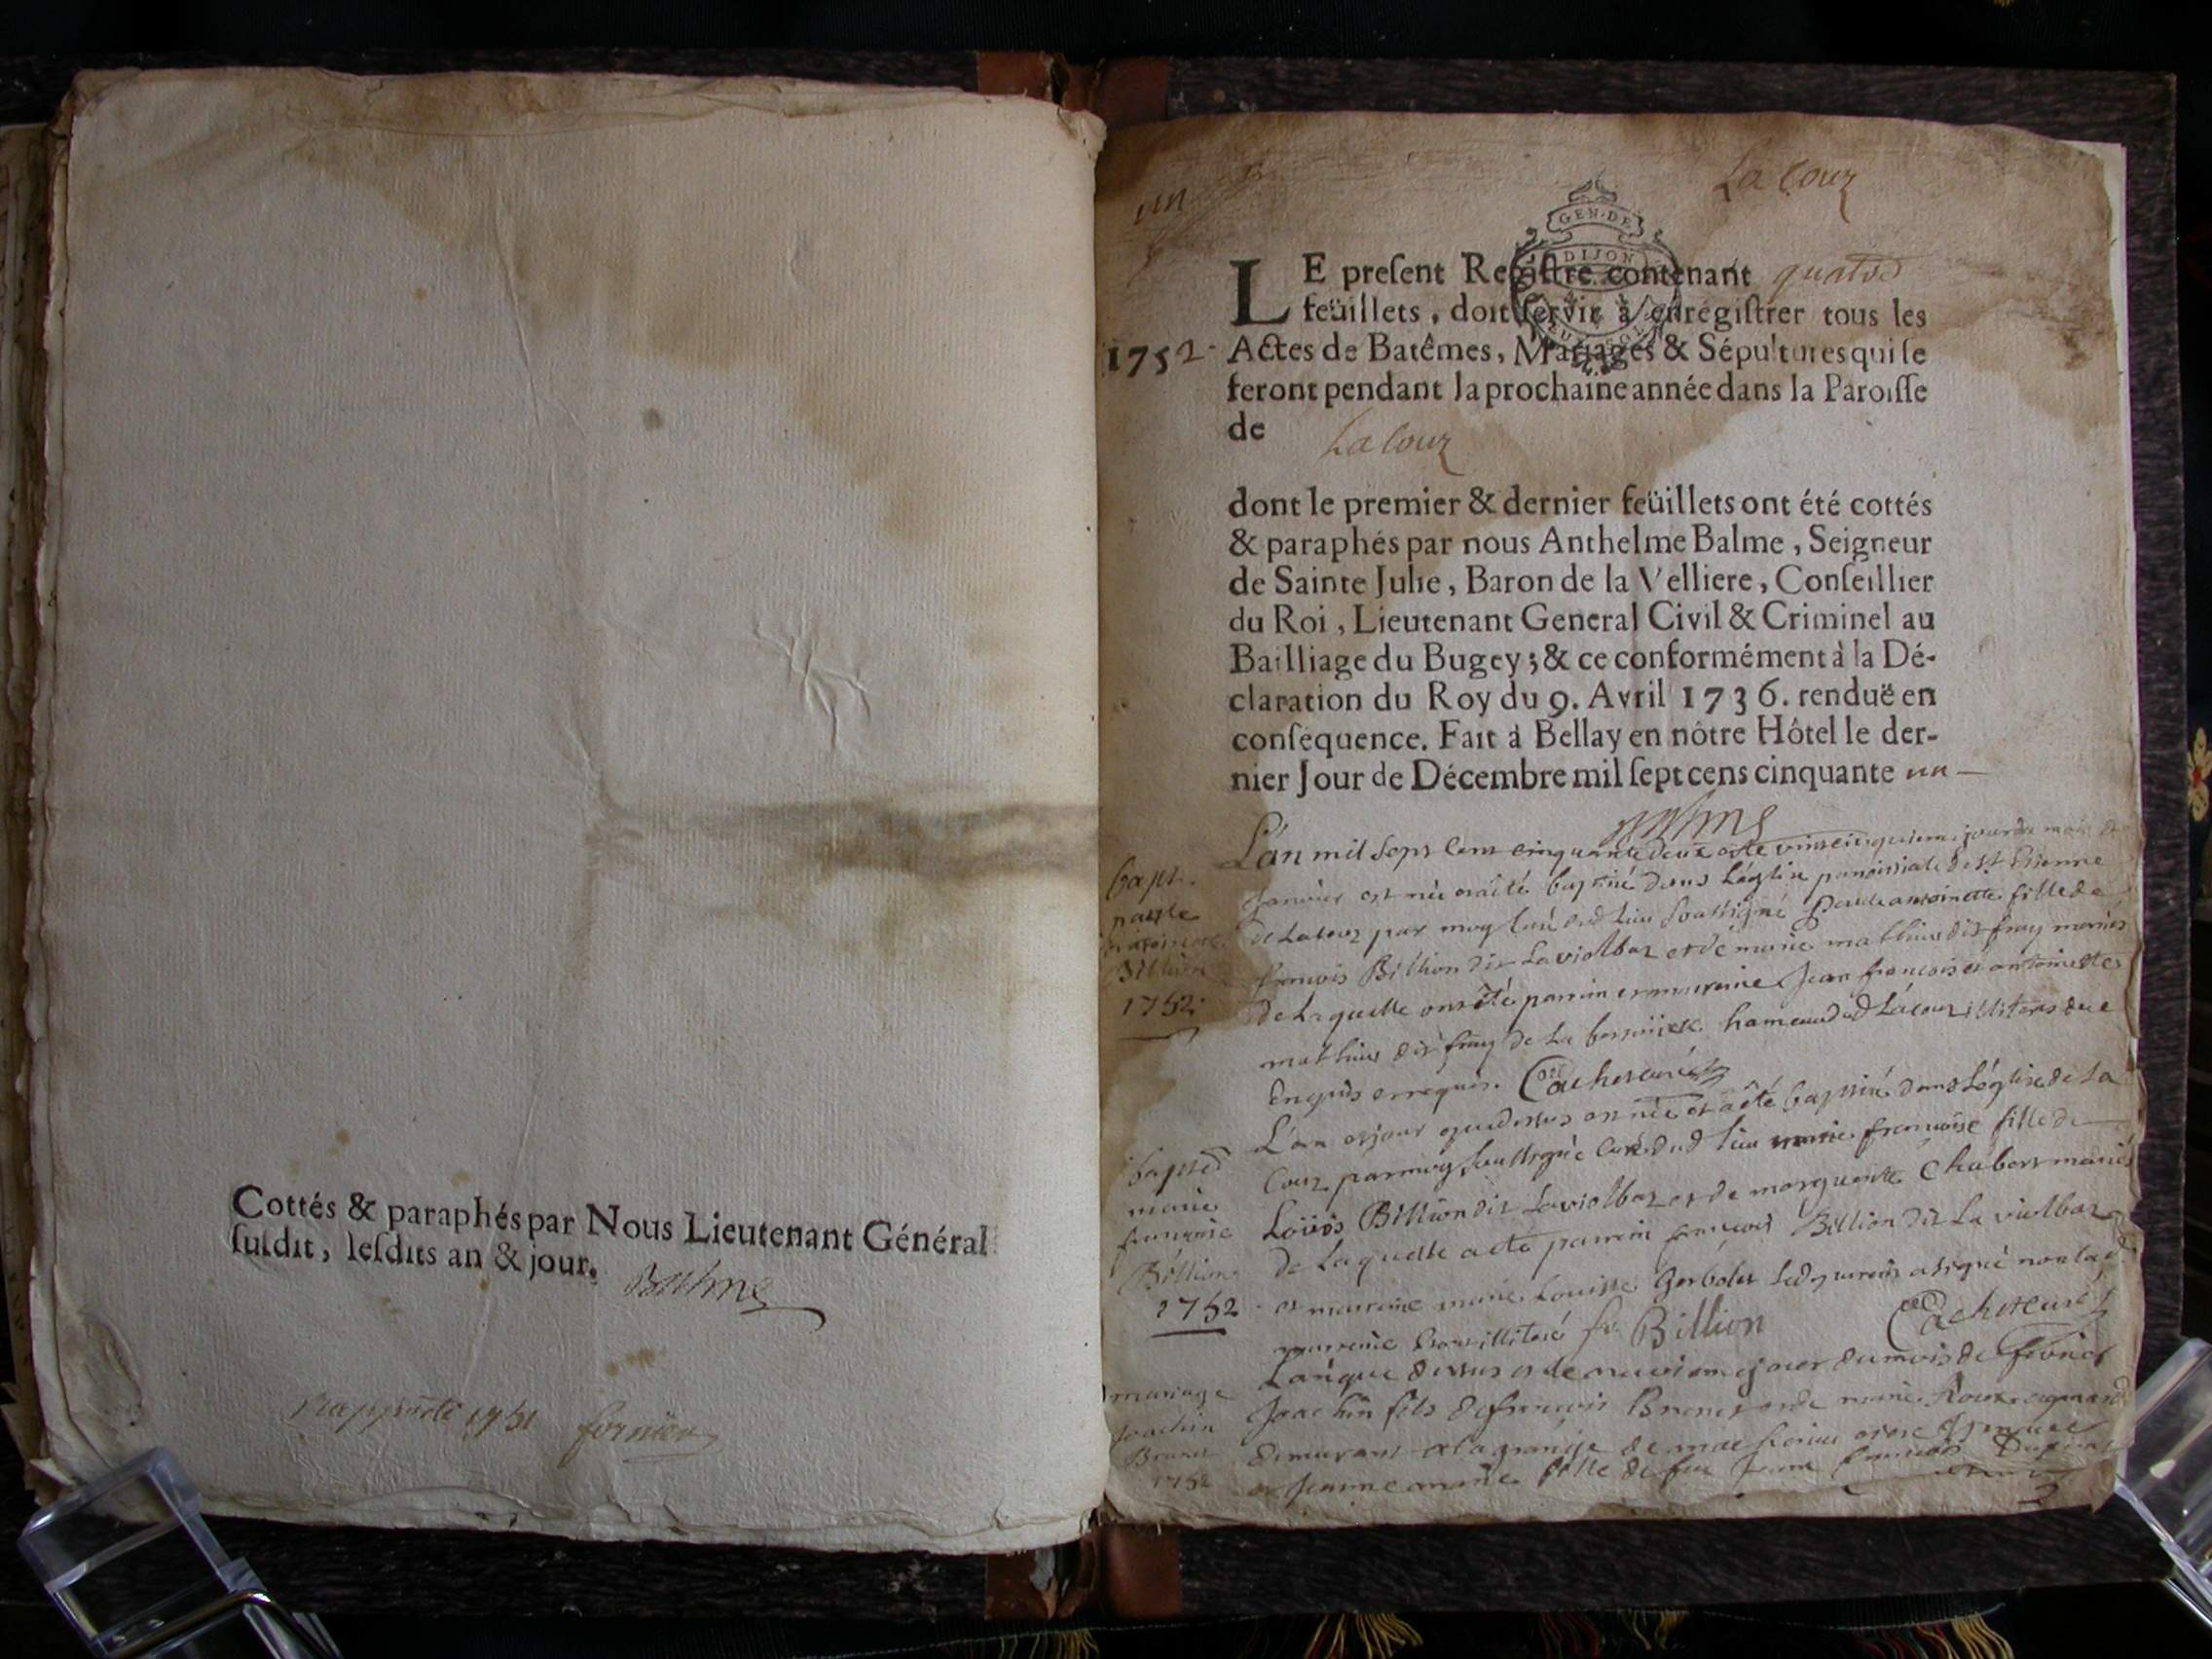 Cottés & paraphés par Nous Lieutenant Général
susdit, lesdits an & jour.
Balme
1751
un
La Cour
GEN·DE
DIJON
LE present Registre contenant quatre
feüillets, doit servir à enregistrer tous les
1752
Actes de Batêmes, Mariages & Sépultures qui se
feront pendant la prochaine année dans la Paroisse
de La Cour
dont le premier & dernier feüillets ont été cottés
& paraphés par nous Anthelme Balme, Seigneur
de Sainte Julie, Baron de la Velliere, Conseillier
du Roi, Lieutenant General Civil & Criminel au
Bailliage du Bugey; & ce conformément à la Dé-
claration du Roy du 9. Avril 1736. renduë en
conséquence. Fait à Bellay en nôtre Hôtel le der-
nier Jour de Décembre mil sept cens cinquante un
Balme
Bapt.
Billion
1752
L'an mil sept cent cinquante deux jour du mois de
Janvier est née baptisé dans L'église paroissiale de St Etienne
de Lacour par moy Curé dud Lieu soussigné antoinette fille de
francois Billion dit Laviolbaz et de marie mathieu dit fray mariés
de Laquelle ont été parrain et marraine Jean francois et antoinette
mathieu dit fray de La hameau dud Lacour illiterés de ce
Enquis et requis. Cachet curé
baptd
marie
francoise
Billion
1752
L'an et jour que dessus est née et a été baptisé dans L'église de La
Cour par moy soussigné Curé dud Lieu marie francoise fille de
Loüis Billion dit Laviolbaz et de marguerite Chabert mariés
de Laquelle a été parrain francois Billion dit La violbaz
et marraine marie Louise Gerbolet Led parrain a signé non lad
marraine illiteré fr. Billion Cachet curé
mariage
Joachin
Brunet
1752
L'an que dessus et le jour du mois de fevrier
Joachin fils de francois Brunet et de marie Roux
demurant a La grange de
et Jeanne marie fille de feu Jean francois